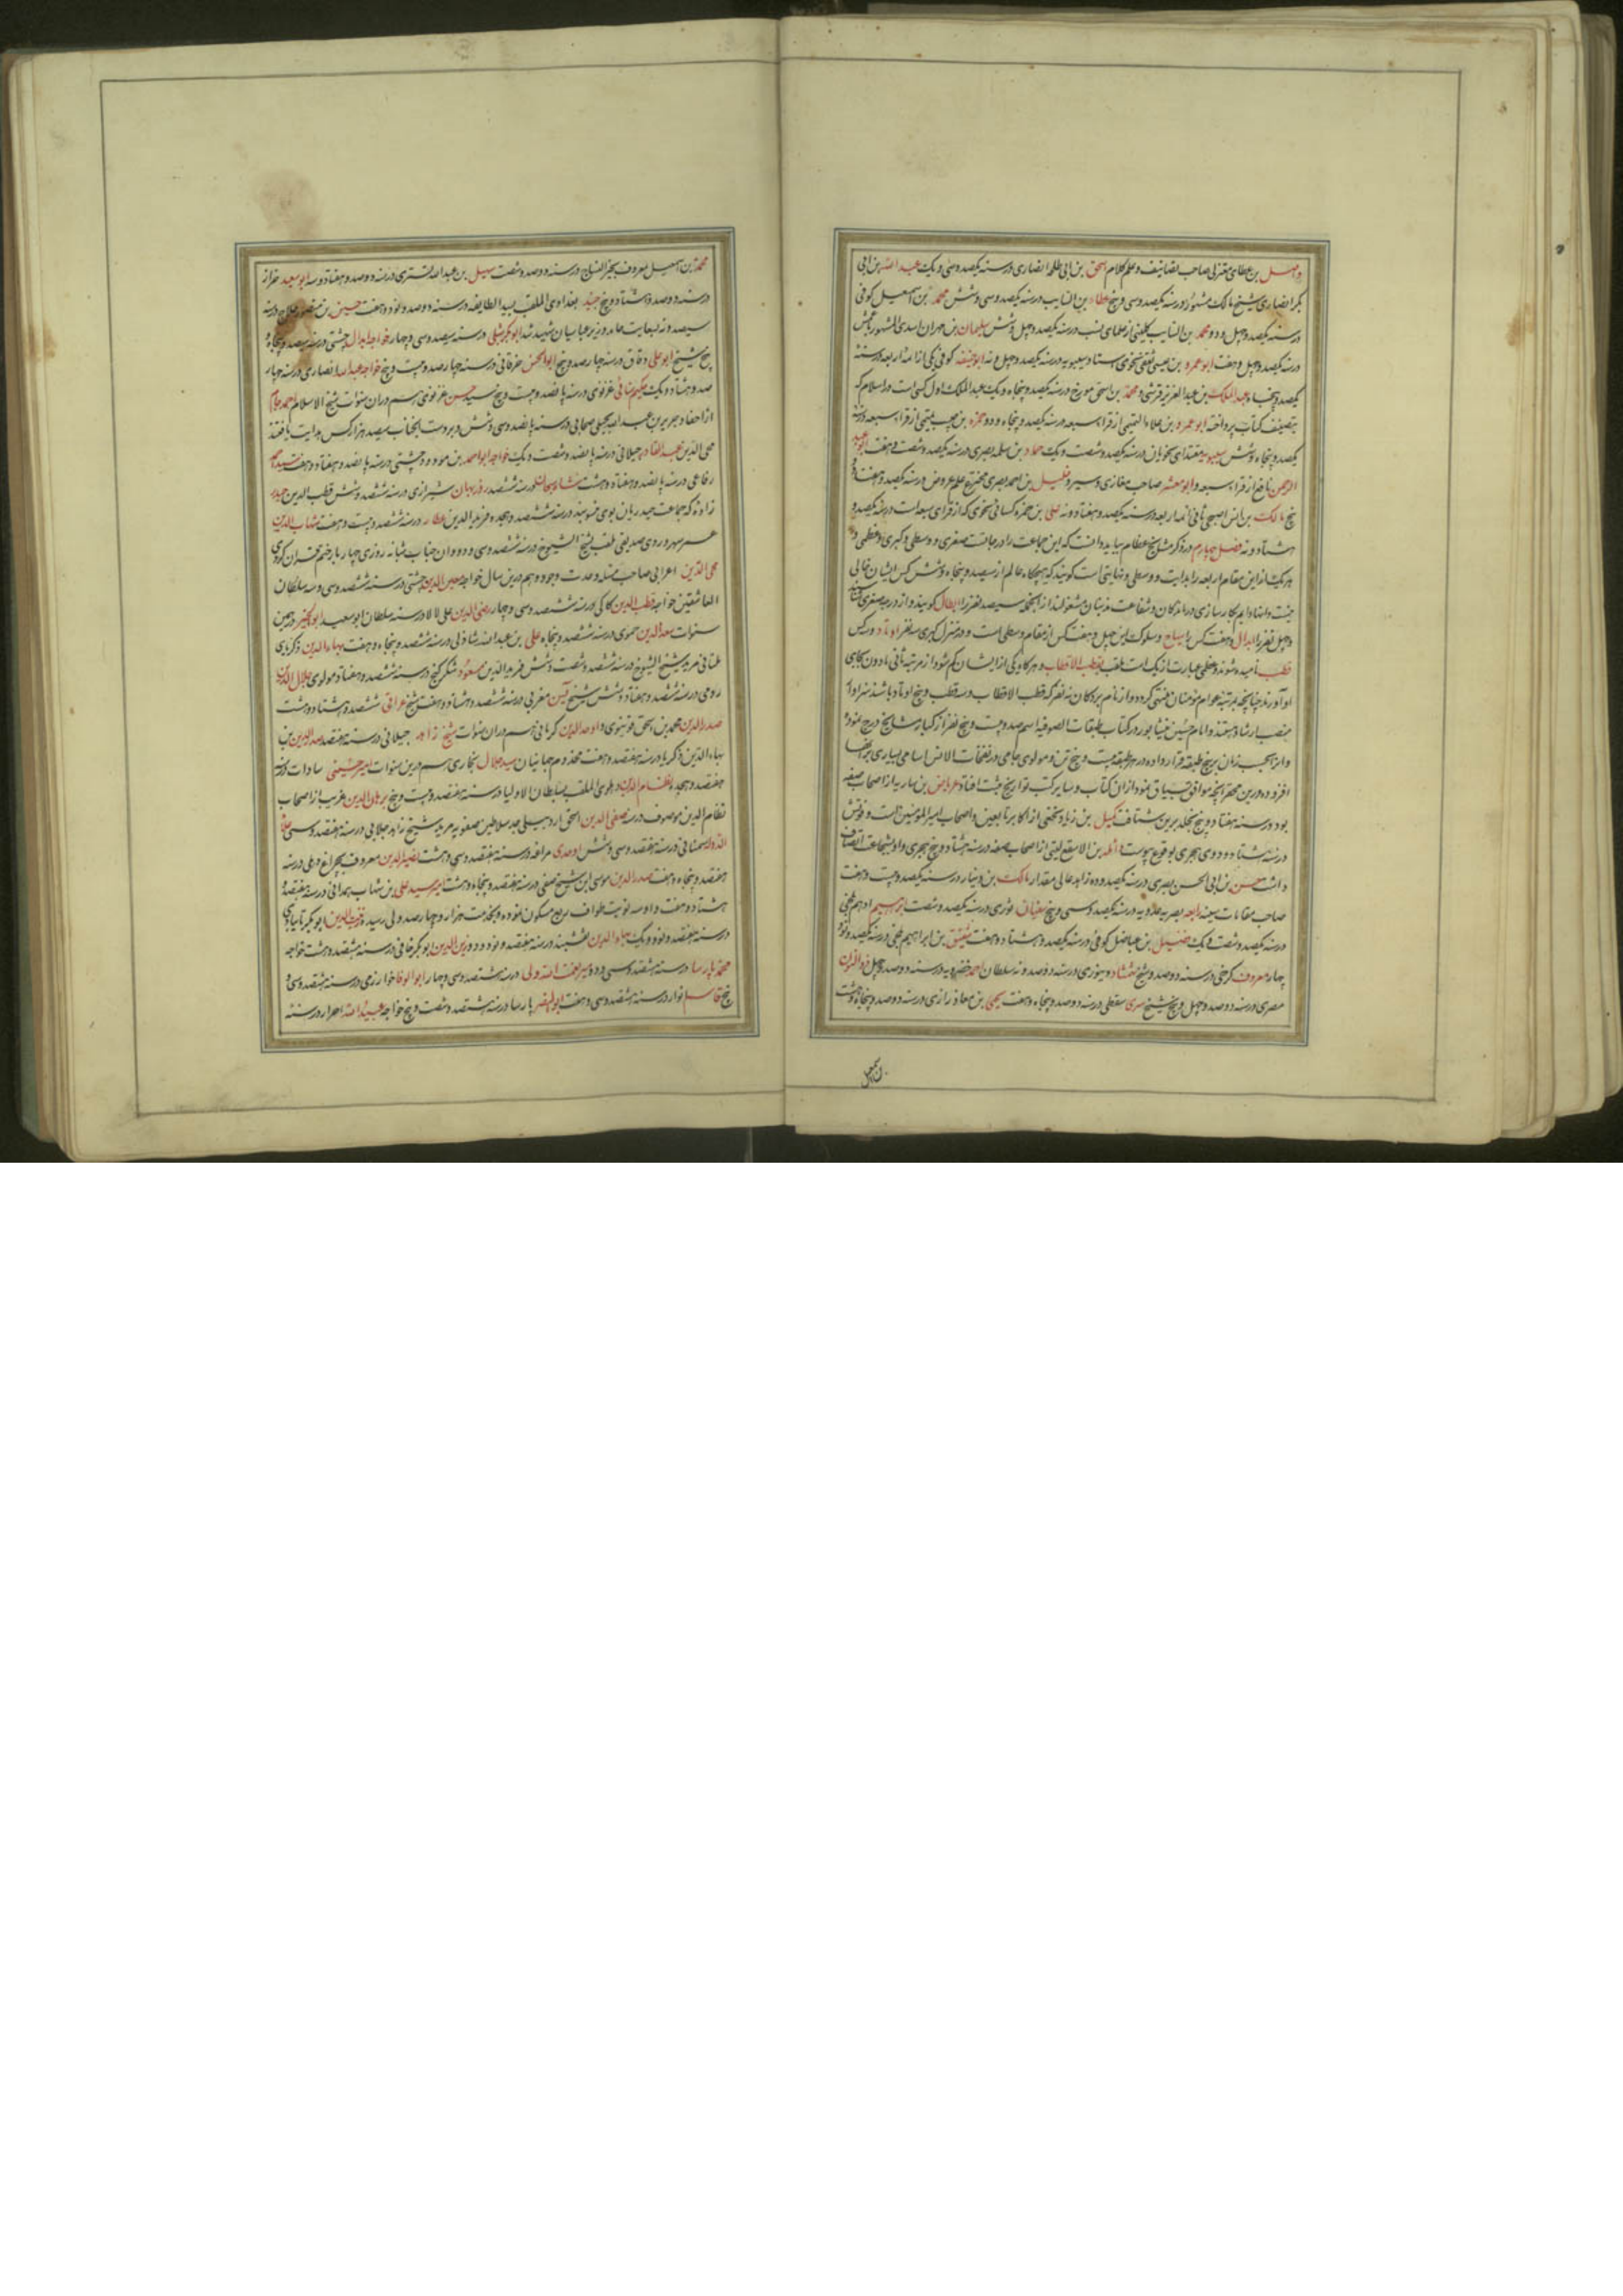 واصل بن عطای معتزلی صاحب تصانیف و علم کلام اسحق بن ابی طلحه انصاری در سنه یکصد و سی و یک عبد الله بن ابی
بکر انصاری شیخ مالک مشهور در سنه یکصد و سی و پنج عطاء بن السایب در سنه یکصد و سی و شش محمد بن اسمعیل کوفی
در سنه یکصد و چهل و دو محمد بن السایب کلبی از علمای نسب در سنه یکصد و چهل و شش سلیمان بن مهران اسدی المشهور باعمش
در سنه یکصد و چهل و هفت ابو عمرو بن عیسی ثقفی نحوی استاد سیبویه در سنه یکصد و چهل و نه ابو حنیفه کوفی یکی از ائمه اربعه در سنه
یکصد و پنجاه عبد الملک بن عبد العزیز قرشی و محمد بن اسحق مورخ در سنه یکصد و پنجاه و یک عبد الملک اول کسی است در اسلام که
بتصنیف کتاب پرداخته ابو عمرو بن علاء التمیمی از قراء سبعه در سنه یکصد و پنجاه و دو حمزه بن حبیب تیمی از قراء سبعه در سنه
یکصد و پنجاه و شش سیبویه مقتدای نحویان در سنه یکصد و شصت و یک حماد بن سلمه بصری در سنه یکصد و شصت و هفت ابو عبد
الرحمن نافع از قراء سبعه و ابو معشر صاحب مغازی و سیر و خلیل بن احمد بصری مخترع علم عروض در سنه یکصد و هفتاد و
پنج مالک بن انس اصبحی ثانی ائمه اربعه در سنه یکصد و هفتاد و نه علی بن حمزه کسائی نحوی که از قرای سبعه است در سنه یکصد و
هشتاد و نه فصل چهارم در ذکر مشایخ عظام بباید دانست که این جماعت را درجاتست صغری و وسطی و کبری و عظمی و
هر یک از این مقام اربعه را بدایت و وسطی و نهایتی است گویند که هیچگاه عالم از سیصد و پنجاه و شش کس ایشان خالی
نیست و اینها دایم بکارسازی درماندگان و شفاعت مذنبان مشغولند از آنجمله سیصد نفر را ابطال گویند و از درجه صغری
و چهل نفر را ابدال و هفت کس را سیاح و سلوک این چهل و هفت کس از مقام وسطی است و در منزل کبری سه نفر اوتاد و سه کس
قطب نامیده شوند و عظمی عبارت از یک است ملقب بقطب الاقطاب و هرگاه یکی از ایشان کم شود از مرتبه ثانی مادون بجای
او آورند چنانچه بمرتبه عوام مؤمنان منتهی گردد و از نام بردگان نه نفر که قطب الاقطاب و سه قطب و پنج اوتاد باشند سزاوار
منصب ارشاد هستند و امام حسین نیشابوری در کتاب طبقات الصوفیه اسم صد و بیست و پنج نفر از کبار مشایخ درج نموده
افزوده درین مختصر آنچه موافق سیاق بود از آن کتاب و سایر کتب تواریخ ثبت افتاد عرباض بن ساریه از اصحاب صفه
بود در سنه هفتاد و پنج بخلد برین شتافت کمیل بن زیاد نخعی از اکابر تابعین و اصحاب امیر المؤمنین است و فوتش
در سنه هشتاد و دوی هجری بوقوع پیوست واثله بن الاسقع لیثی از اصحاب صفه در سنه هشتاد و پنج هجری
داشت حسن بن ابی الحسن بصری در سنه یکصد و ده زاهد عالی مقدار مالک بن دینار در سنه یکصد و بیست و هفت
صاحب مقامات سنیه رابعه بصریه عدویه در سنه یکصد و سی و پنج سفیان ثوری در سنه یکصد و شصت ابراهیم ادهم بلخی
در سنه یکصد و شصت و یک فضیل بن عیاض کوفی در سنه یکصد و هشتاد و هفت شقیق بن ابراهیم بلخی در سنه یکصد و نود و
چهار معروف کرخی در سنه دو صد و پنج ممشاد دینوری در سنه دو صد و نه سلطان احمد خضرویه در سنه دو صد و چهل ذوالنون
مصری در سنه دو صد و چهل و پنج شیخ سری سقطی در سنه دو صد و پنجاه و هفت یحیی بن معاذ رازی در سنه دو صد و پنجاه و هشت
محمد بن اسمعیل معروف بخیر النساج در سنه دو صد و شصت سهل بن عبد الله تستری در سنه دو صد و هفتاد و سه ابو سعید خراز
در سنه دو صد و هشتاد و پنج جنید بغدادی الملقب بسید الطایفه در سنه دو صد و نود و هفت حسین بن منصور حلاج در سنه
سیصد و نه بسعایت حامد وزیر عباسیان شهید شد ابو بکر شبلی در سنه سیصد و سی و چهار خواجه ابدال چشتی در سنه سیصد و پنجاه و
پنج شیخ ابو علی دقاق در سنه چهار صد و پنج ابو الحسن خرقانی در سنه چهار صد و بیست و پنج خواجه عبد الله انصاری در سنه چهار
صد و هشتاد و یک حکیم سنائی غزنوی در سنه پانصد و بیست و پنج سید حسن غزنوی هم در آن سنوات شیخ الاسلام احمد جام
از احفاد جریر بن عبد الله بجلی صحابی در سنه پانصد و سی و شش و بر دست آنجناب سیصد هزار کس هدایت یافتند
محی الدین عبد القادر جیلانی در سنه پانصد و شصت و یک خواجه ابو احمد بن مودود چشتی در سنه پانصد و هفتاد و هفت سید احمد
رفاعی در سنه پانصد و هفتاد و هشت شاه سنجان در سنه ششصد روزبهان شیرازی در سنه ششصد و شش قطب الدین حیدر
زاوه که جماعت حیدریان بوی منسوبند در سنه ششصد و هیجده فرید الدین عطار در سنه ششصد و بیست و هفت شهاب الدین
عمر سهروردی صدیقی ملقب بشیخ الشیوخ در سنه ششصد و سی و دو و آن جناب شبانه روزی چهار بار ختم قران کردی
محی الدین اعرابی صاحب مسئله وحدت وجود و هم درین سال خواجه معین الدین چشتی در سنه ششصد و سی و سه سلطان
العاشقین خواجه قطب الدین کاکی در سنه ششصد و سی و چهار رضی الدین علی لالا در سنه سلطان ابو سعید ابو الخیر در همین
سنوات سعد الدین حموی در سنه ششصد و پنجاه علی بن عبد الله شاذلی در سنه ششصد و پنجاه و هفت بهاء الدین ذکریای
ملتانی مرید شیخ الشیوخ در سنه ششصد و شصت و شش فرید الدین مسعود شکر گنج در سنه ششصد و هفتاد مولوی جلال الدین
رومی در سنه ششصد و هفتاد و شش شیخ یسن مغربی در سنه ششصد و هشتاد و هفت شیخ عراقی ششصد و هشتاد و هشت
صدر الدین محمد بن اسحق قونیوی و اوحد الدین کرمانی هم در آن سنوات شیخ زاهد جیلانی در سنه هفتصد صدر الدین بن
بهاء الدین ذکریا در سنه هفتصد و هفت مخدوم جهانیان سید جلال بخاری هم درین سنوات امیر حسینی سادات در سنه
هفتصد و هیجده نظام الدین دهلوی الملقب بسلطان الاولیا در سنه هفتصد و بیست و پنج برهان الدین غریب از اصحاب
نظام الدین موصوف در سنه صفی الدین اسحق اردبیلی جد سلاطین صفویه مرید شیخ زاهد جیلانی در سنه هفتصد و سی علاء
الدوله سمنانی در سنه هفتصد و سی و شش اوحدی مراغه در سنه هفتصد و سی و هشت نصیر الدین معروف بچراغ دهلی در سنه
هفتصد و پنجاه و هفت صدر الدین موسی ابن شیخ صفی در سنه هفتصد و پنجاه و هشت امیر سید علی بن شهاب همدانی در سنه هفتصد و
هشتاد و هفت و او سه نوبت طواف ربع مسکون نموده و بخدمت هزار و چهار صد ولی رسیده زین الدین ابو بکر تایبادی
در سنه هفتصد و نود و یک بهاء الدین نقشبند در سنه هفتصد و نود و دو زین الدین ابو بکر خافی در سنه هشتصد و هشت خواجه
محمد پارسا در سنه هشتصد و سی و دو میر نعمت الله ولی در سنه هشتصد و سی و چهار ابو الوفا خوارزمی در سنه هشتصد و سی و
پنج قاسم انوار در سنه هشتصد و سی و هفت ابو النصر پارسا در سنه هشتصد و شصت و پنج خواجه عبید الله احرار در سنه